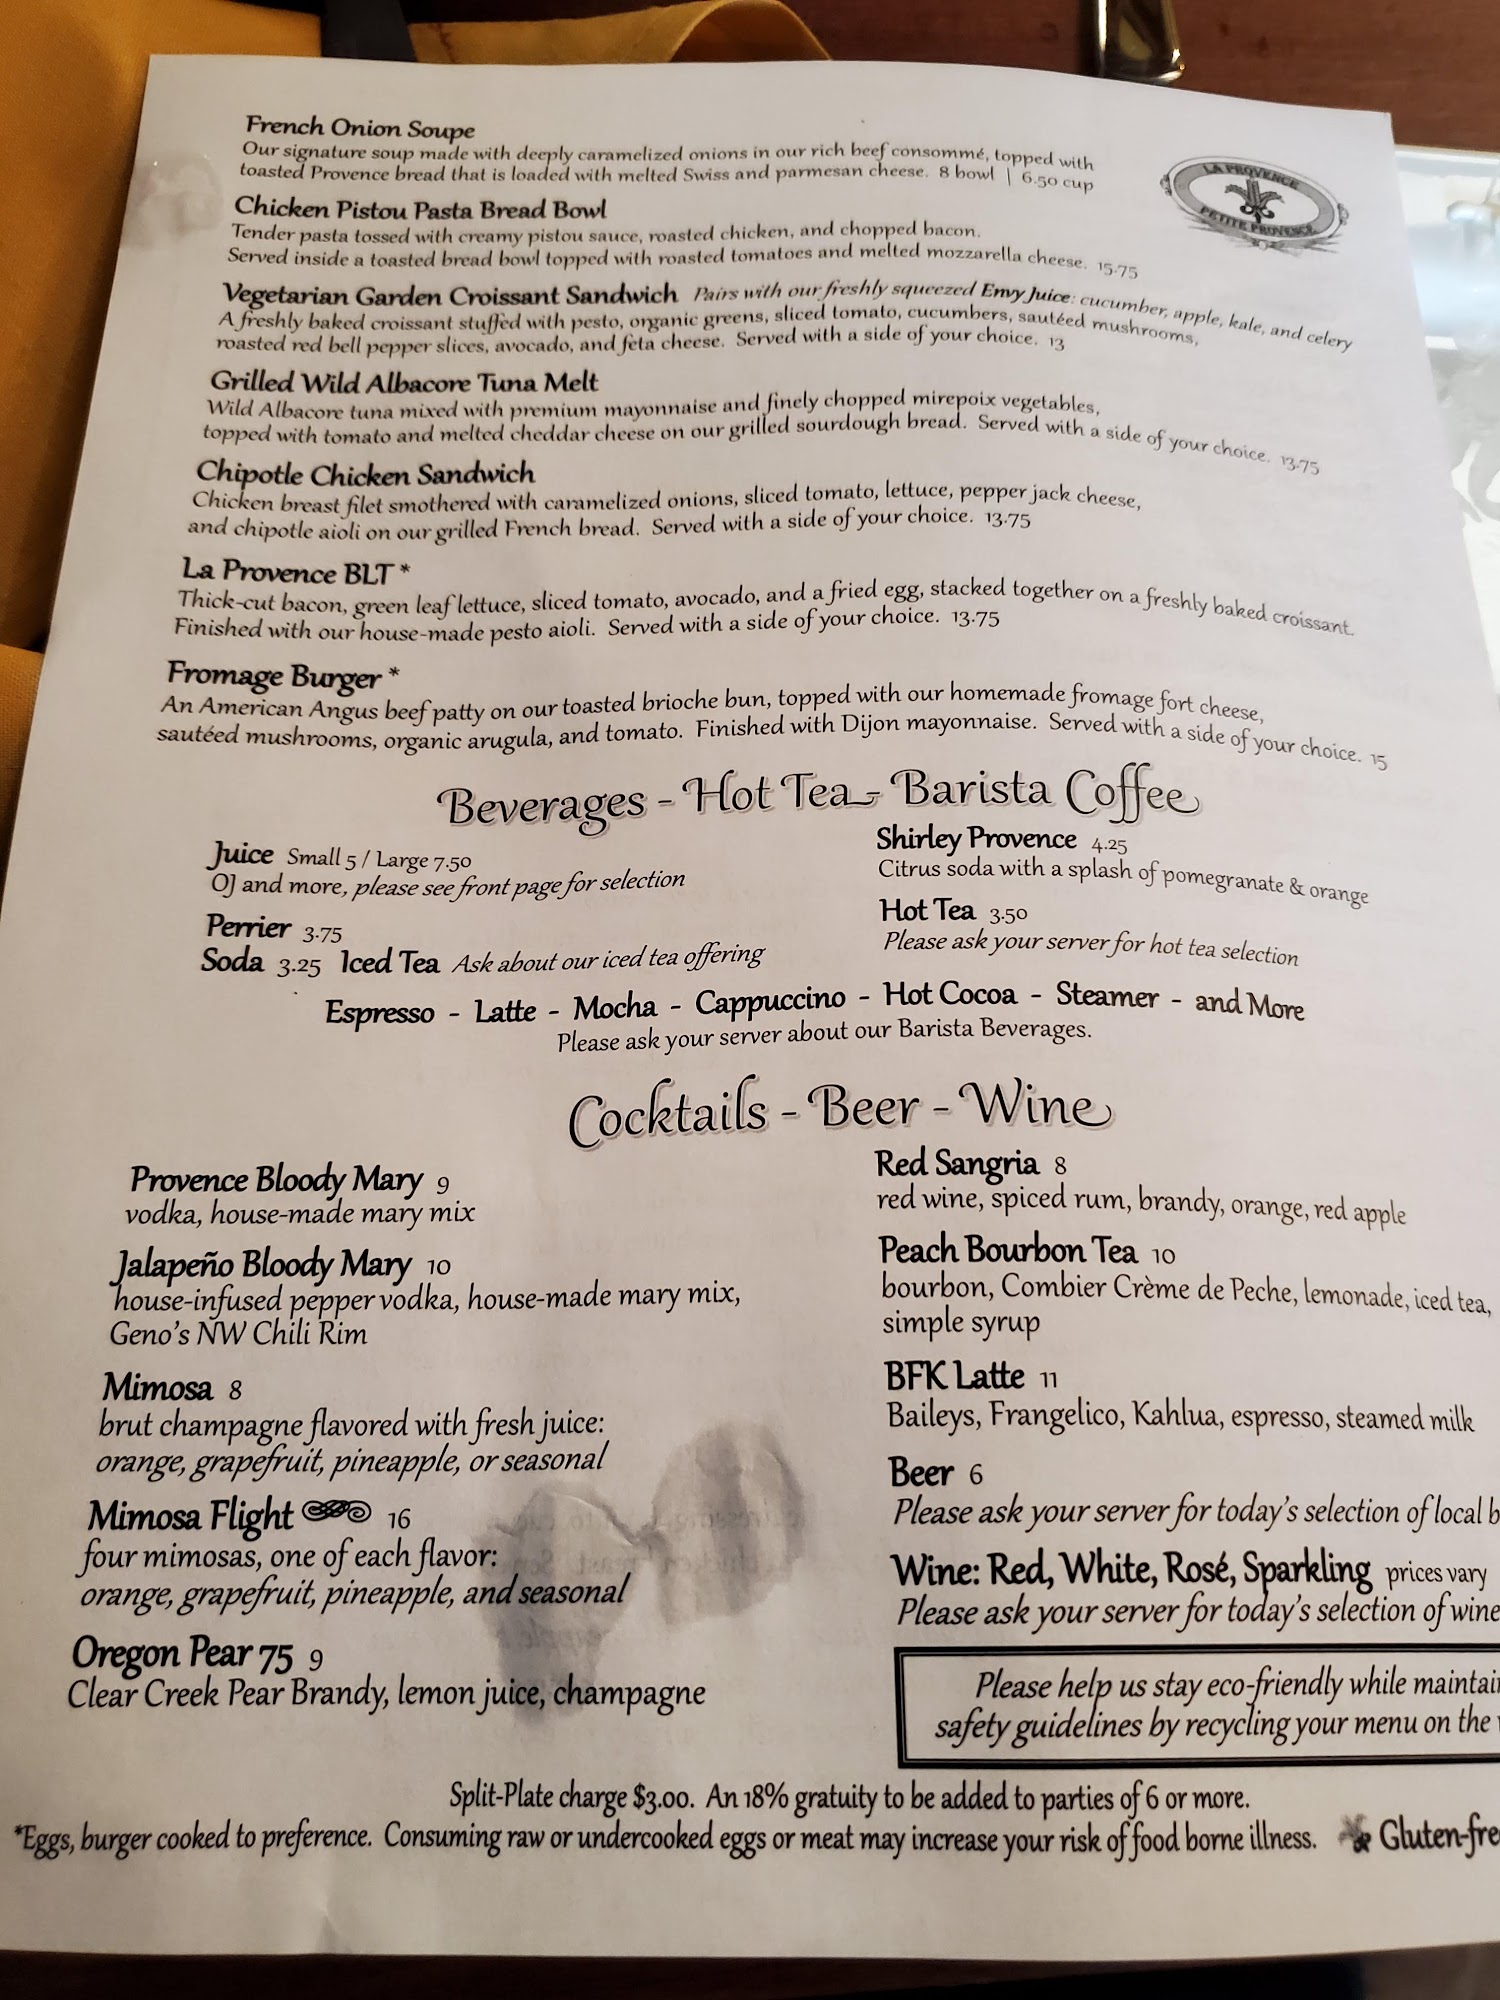 French Onion Soupe
Our signature soup made with deeply caramelized onions in our rich beef consommé, topped with
toasted Provence bread that is loaded with melted Swiss and parmesan cheese. 8 bowl | 6.50 cup
LA PROVENCE
PETITE PROVENCE
Chicken Pistou Pasta Bread Bowl
Tender pasta tossed with creamy pistou sauce, roasted chicken, and chopped bacon.
Served inside a toasted bread bowl topped with roasted tomatoes and melted mozzarella cheese. 15.75
Vegetarian Garden Croissant Sandwich Pairs with our freshly squeezed Envy Juice: cucumber, apple, kale, and celery
A freshly baked croissant stuffed with pesto, organic greens, sliced tomato, cucumbers, sautéed mushrooms,
roasted red bell pepper slices, avocado, and feta cheese. Served with a side of your choice. 13
Grilled Wild Albacore Tuna Melt
Wild Albacore tuna mixed with premium mayonnaise and finely chopped mirepoix vegetables,
topped with tomato and melted cheddar cheese on our grilled sourdough bread. Served with a side of your choice. 13.75
Chipotle Chicken Sandwich
Chicken breast filet smothered with caramelized onions, sliced tomato, lettuce, pepper jack cheese,
and chipotle aioli on our grilled French bread. Served with a side of your choice. 13.75
La Provence BLT *
Thick-cut bacon, green leaf lettuce, sliced tomato, avocado, and a fried egg, stacked together on a freshly baked croissant.
Finished with our house-made pesto aioli. Served with a side of your choice. 13.75
Fromage Burger *
An American Angus beef patty on our toasted brioche bun, topped with our homemade fromage fort cheese,
sautéed mushrooms, organic arugula, and tomato. Finished with Dijon mayonnaise. Served with a side of your choice. 15
Beverages - Hot Tea - Barista Coffee
Juice Small 5 / Large 7.50
OJ and more, please see front page for selection
Perrier 3.75
Soda 3.25 Iced Tea Ask about our iced tea offering
Shirley Provence 4.25
Citrus soda with a splash of pomegranate & orange
Hot Tea 3.50
Please ask your server for hot tea selection
Espresso - Latte - Mocha - Cappuccino - Hot Cocoa - Steamer - and More
Please ask your server about our Barista Beverages.
Cocktails - Beer - Wine
Provence Bloody Mary 9
vodka, house-made mary mix
Jalapeño Bloody Mary 10
house-infused pepper vodka, house-made mary mix,
Geno's NW Chili Rim
Mimosa 8
brut champagne flavored with fresh juice:
orange, grapefruit, pineapple, or seasonal
Mimosa Flight 16
four mimosas, one of each flavor:
orange, grapefruit, pineapple, and seasonal
Oregon Pear 75 9
Clear Creek Pear Brandy, lemon juice, champagne
Red Sangria 8
red wine, spiced rum, brandy, orange, red apple
Peach Bourbon Tea 10
bourbon, Combier Crème de Peche, lemonade, iced tea,
simple syrup
BFK Latte 11
Baileys, Frangelico, Kahlua, espresso, steamed milk
Beer 6
Please ask your server for today's selection of local b
Wine: Red, White, Rosé, Sparkling prices vary
Please ask your server for today's selection of wine
Please help us stay eco-friendly while maintai
safety guidelines by recycling your menu on the
Split-Plate charge $3.00. An 18% gratuity to be added to parties of 6 or more.
*Eggs, burger cooked to preference. Consuming raw or undercooked eggs or meat may increase your risk of food borne illness. Gluten-fre